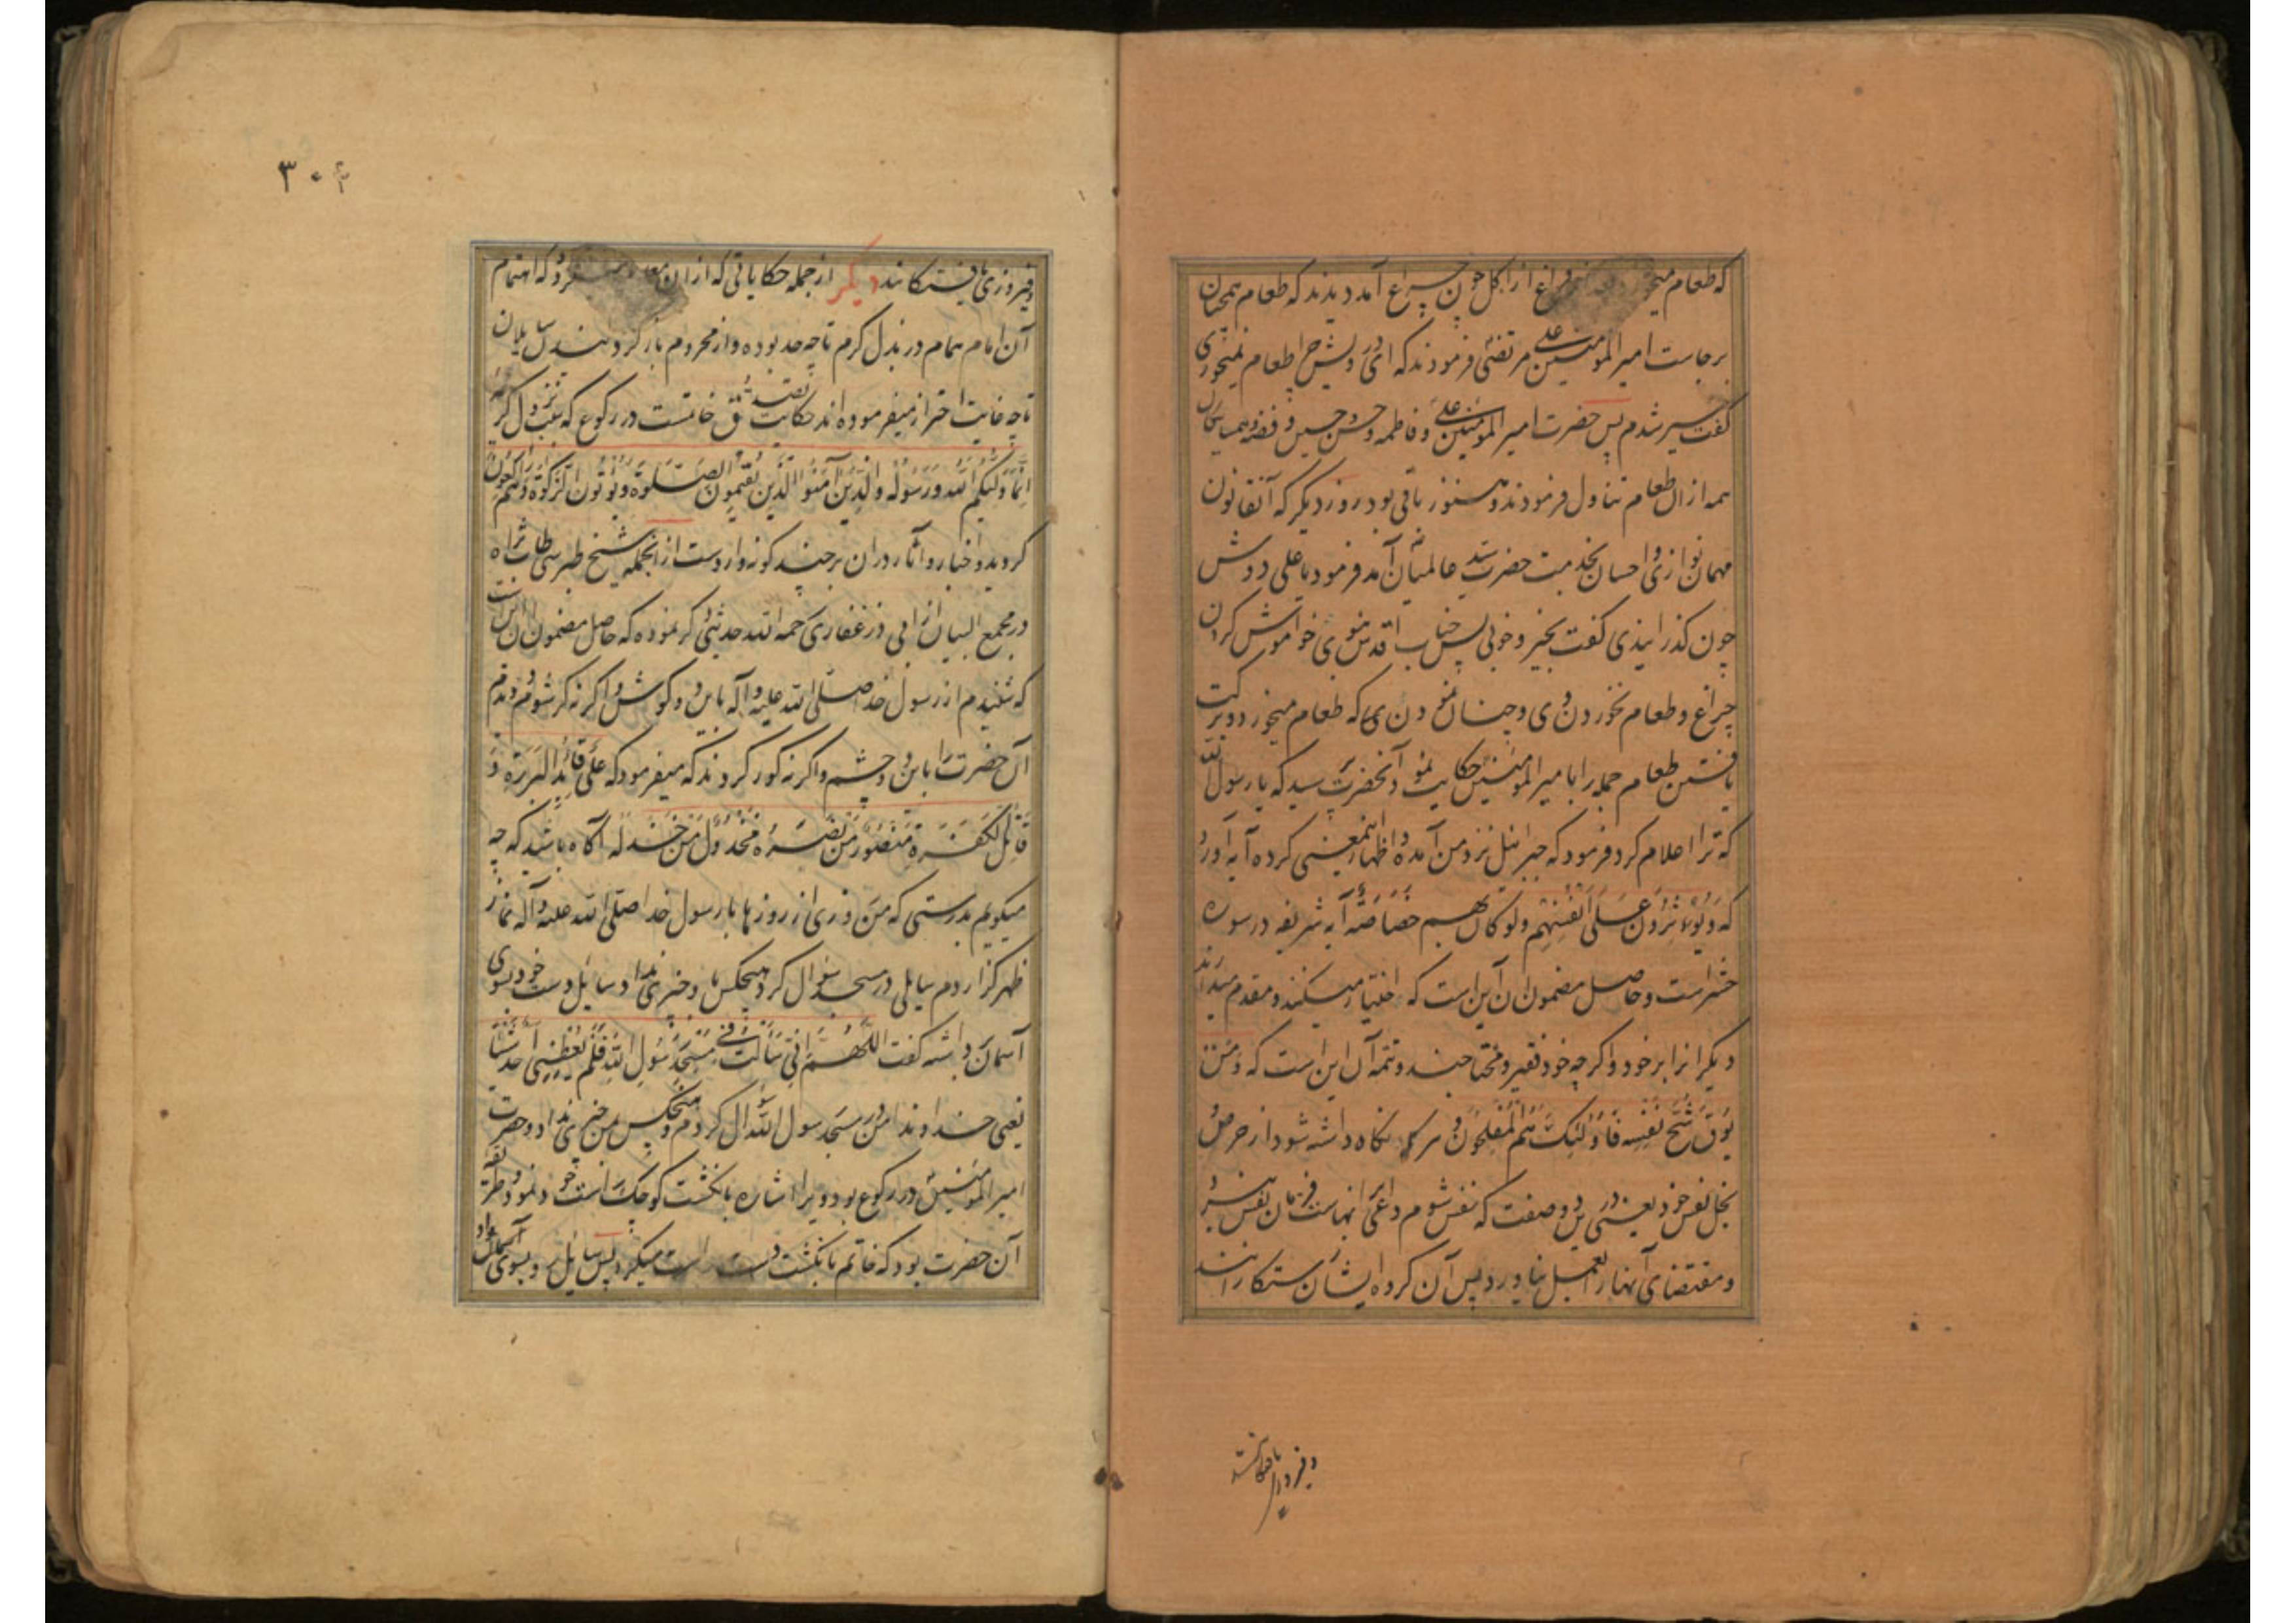 که طعام از اکل چون چراغ آمد دیدند که طعام همچنان
برجاست امیر المومنین علی مرتضی فرمودند که ای درویش چرا طعام نمیخوری
گفت سیر شدم پس حضرت امیر المومنین علی و فاطمه و حسن و حسین و فضه و همسایکان
همه از ان طعام تناول فرمودند و هنوز باقی بود روز دیگر که آنقانون
مهمان نوازی و احسان بخدمت حضرت سید عالمیان آمد فرمود یا علی دوش
چون گذرانیدی گفت بخیر و خوبی پس جناب اقدس نبوی خواموش کردن
چراغ و طعام نخوردن وی و چنان نمودن وی که طعام میخورد و برکت
یافتن طعام جمله را با امیر المومنین حکایت نمود آنحضرت پرسید که یا رسول الله
که ترا اعلام کرد فرمود که جبرائیل نزد من آمده و اظهار اینمعنی کرده آیه آورد
که وَیُؤثِرُونَ عَلَی اَنفُسِهِم ولو کان بهم خَصَاصَة آیه شریفه در سوره
حشر است و حاصل مضمون ان آن این است که اختیار میکنند و مقدم میدارند
دیگرانرا بر خود و اگرچه خود فقیر و محتاجند و تتمه آن این است که وَمَن
یُوقَ شُحَّ نَفسِهِ فَاُولئِکَ هُمُ المُفلِحُونَ و هر که نگاه داشته شود از حرص و
بخل نفس خود یعنی درین دو صفت که نفس شوم داعی انهاست فرمان نفس نبرد
و مقتضای آنها را بعمل نیاورد پس آن گروه ایشان رستکارانند
و فیروزی یافتکانند
۳۰۴
و فیروزی یافتکانند دیگر از جمله حکایاتی که از ان که اهتمام
آن امام همام در بذل کرم تا چه حد بوده و از محروم بازگردانیدن سایلان
تا چه غایت احتراز میفرموده اند حکایت تصدق خاتمست در رکوع که سبب نزول کریمه
اِنَّمَا وَلِیُّکُمُ اللهُ وَرَسُولُهُ وَالَّذِینَ آمَنُوا الَّذِینَ یُقِیمُونَ الصَّلوةَ وَیُؤتُونَ الزَّکوةَ وَهُم رَاکِعُونَ
گردیده و اخبار و آثار دران بر چند گونه وارد است از انجمله شیخ طبرسی طاب ثراه
در مجمع البیان از ابی ذر غفاری رحمه الله حدیثی ذکر نموده که حاصل مضمون ان این است
که شنیدم از رسول خدا صلی الله علیه و آله باین دو گوش و اگر نه کر شوم و دیدم
آن حضرت را باین دو چشم و اگر نه کور گردند که میفرمود که عَلِیٌّ قَائِدُ البَرَرَةِ وَ
قَاتِلُ الکَفَرَةِ مَنصُورٌ مَن نَصَرَهُ مَخذُولٌ مَن خَذَلَهُ آگاه باشید که چه
میگویم بدرستی که من روزی از روزها با رسول خدا صلی الله علیه و آله نماز
ظهر گزاردم سایلی در مسجد سؤال کرد و هیچکس باو چیزی نداد سایل دست خود بسوی
آسمان برداشته گفت اللّهُمَّ اِنِّی سَاَلتُ فِی مَسجِدِ رَسُولِ اللهِ فَلَم یُعطِنِی اَحَدٌ شَیئًا
یعنی خداوندا من در مسجد رسول الله سؤال کردم و هیچکس بمن چیزی نداد و حضرت
امیر المومنین در رکوع بود و ویرا اشاره بانکشت کوچک راست خود نمود و طریقه
آن حضرت بود که خاتم بانکشت دست راست میکرد پس سایل رو بسوی آسمان